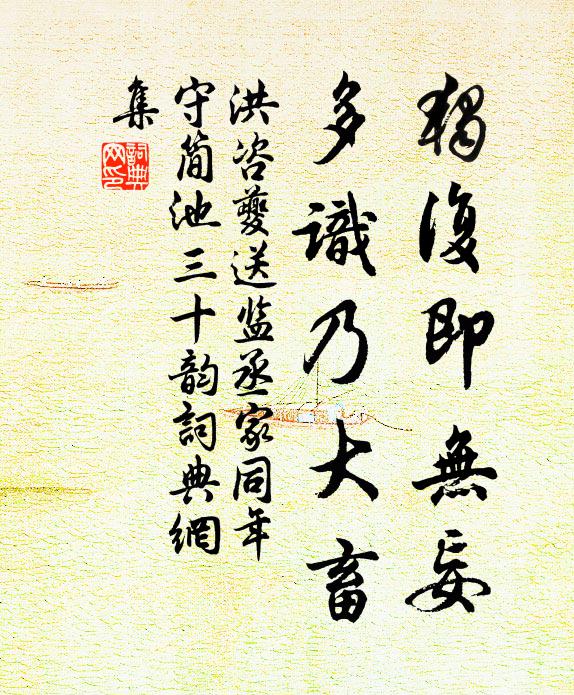 獨復即無妄
多識乃大畜
洪咨夔送监丞家同年
守简池三十韵詞典網
集
詞典网印